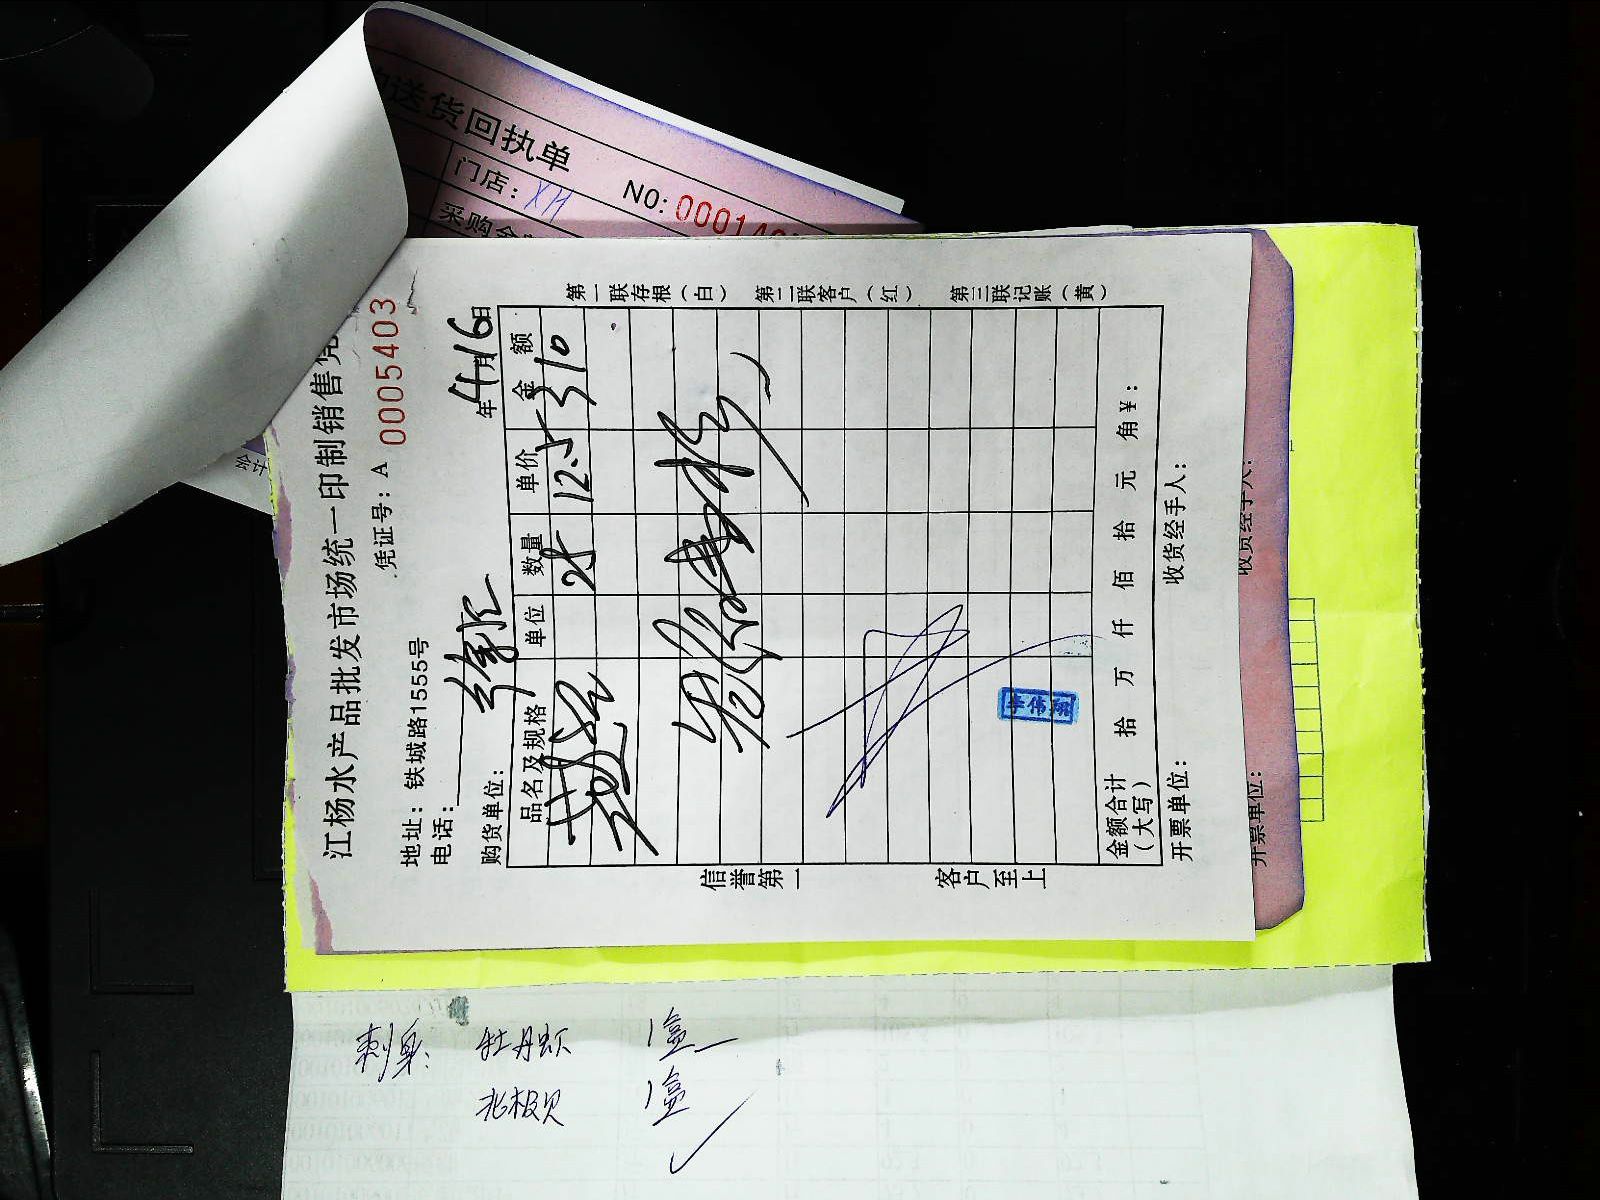 送货回执单
门店：XH
NO:
采购
江杨水产品批发市场统一印制销售凭
凭证号：A 0005403
地址：铁城路1555号
电话：
购货单位：徐汇
年 4月16日
品名及规格 单位 数量 单价 金额
25 12.5 310
金额合计（大写） 拾 万 仟 佰 拾 元 角 ¥：
开票单位： 收货经手人：
信誉第一 客户至上
第一联存根（白） 第二联客户（红） 第三联记账（黄）
开票单位： 收货经手人：
刺身： 牡丹虾 1盒
北极贝 1盒